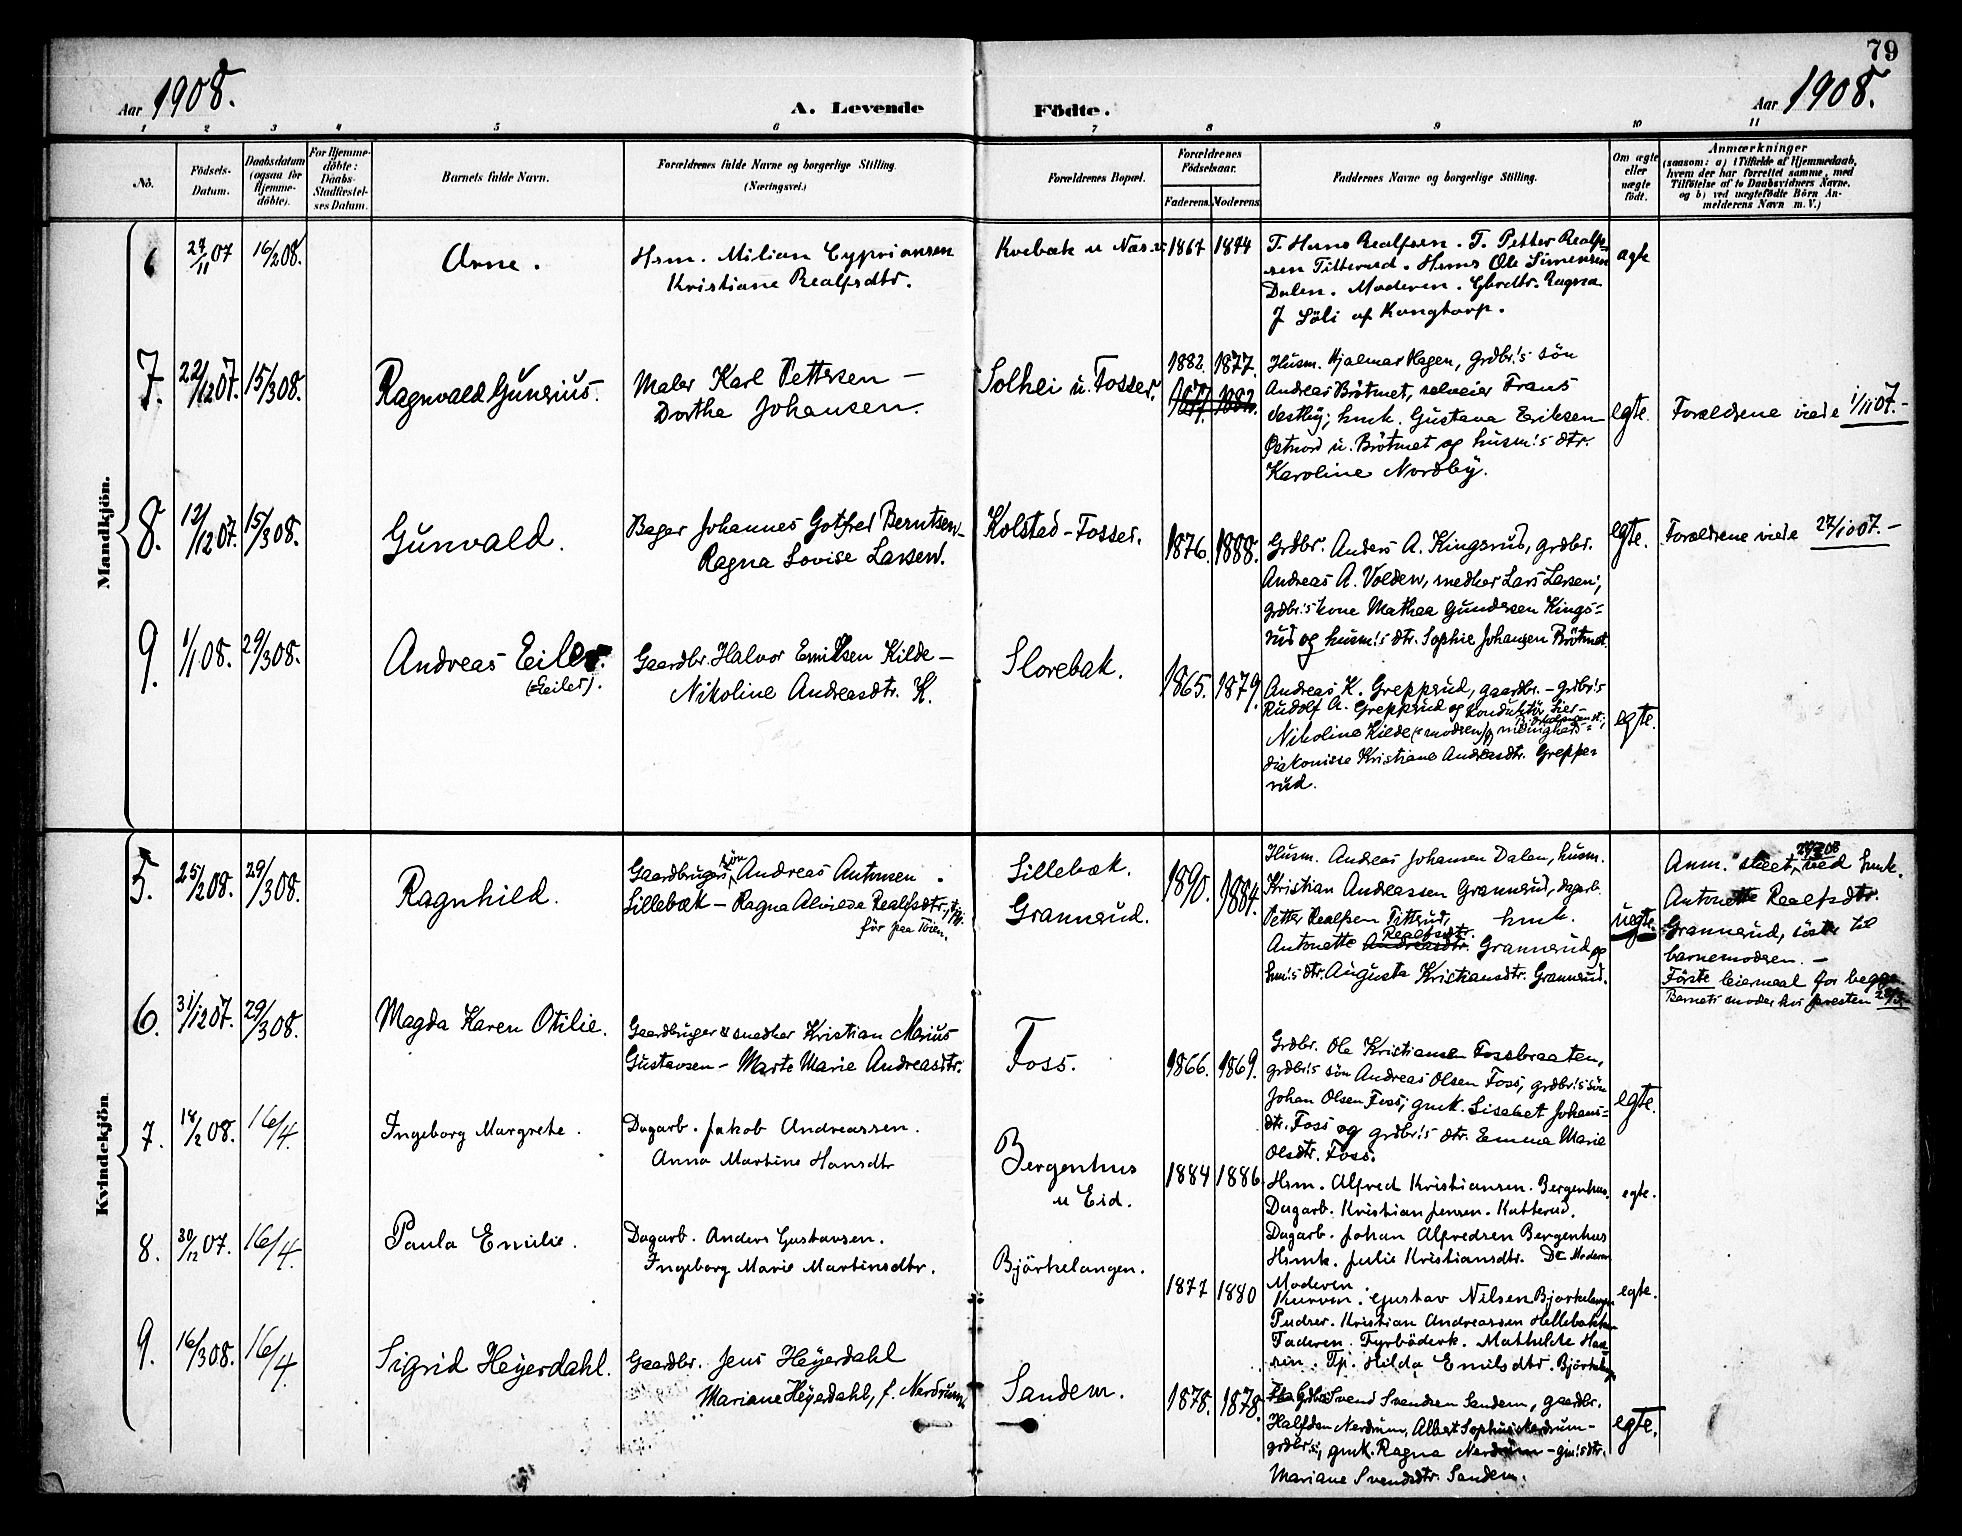 79
Aar 1908.
A. Levende Födte.
Aar 1908.
1 2 3 4 5 6 7 8 9 10 11
No.
Födsels-
Datum.
Daabsdatum
(ogsaa for
Hjemme-
döbte).
For Hjemme-
döbte:
Daabs-
Stadfæstel-
ses Datum.
Barnets fulde Navn.
Forældrenes fulde Navne og borgerlige Stilling.
(Næringsvei.)
Forældrenes Bopæl.
Forældrenes
Födselsaar.
Faderens. Moderens.
Faddernes Navne og borgerlige Stilling.
Om ægte
eller
uægte
födt.
Anmærkninger
(saasom: a) i Tilfælde af Hjemmedaab,
hvem der har forrettet samme, med
Tilföielse af to Daabsvidners Navne,
og b) ved uægtefödte Börn An-
melderens Navn m. V.)
Mandkjön.
6 27/11 07 16/2 08.
Arne.
Hsm. Milian Cypriansen
Kristiane Realfsdtr.
Kvebæk u Næs
1867 1874
F. Hans Realfsen. F. Petter Realf-
sen Titterud. Hsms Ole Simensen
Dalen. Moderen. Gbrdtr. Ragna
J Söli af Kongtorp.
ægte
7. 22/12 07. 15/3 08.
Ragnvald Gunerius.
Maler Karl Pettersen –
Dorthe Johansen.
Solhei u. Fosser.
1882. 1877.
1877. 1882.
Husm. Hjalmar Hagen, grdbr.'s sön
Andreas Brötmet, selveier Frans
Vestby; hmk. Gustava Eriksen
Østnord u. Brötmet og husm.'s dtr.
Karoline Nordby.
egte.
Forældrene viede 1/11 07.–
8. 12/12 07. 15/3 08.
Gunvald.
Bager Johannes Gotfred Berntsen –
Ragna Lovise Larsen.
Kolstad-Fosser.
1876. 1888.
Grdbr. Anders A. Kingsrud, grdbr.
Andreas A. Volden, snedker Lars Larsen;
grdbr.'s kone Mathea Gundersen Kings-
rud og husm.'s dtr. Sophie Johansen Brötmet.
egte.
Forældrene viede 27/10 07.–
9. 1/1 08. 29/3 08.
Andreas Eiler.
(=Eiler).
Gaardbr. Halvor Emilsen Kilde –
Nikoline Andreasdtr. K.
Slorebak.
1865. 1879.
Andreas K. Grepperud, gaardbr. – grbr's
Rudolf A. Grepperud og konduktör
Nikoline Kilde (= modren) og menigheds-
diakonisse Kristiane Andreasdtr. Greppe
rud.
egte.
Kvindekjön.
5. 25/2 08. 29/3 08.
Ragnhild.
Gaardbrugers sön Andreas Antonsen
Lillebæk – Ragna Alviede Realfsdtr.,
för paa Töien.
Lillebæk.
Grannerud.
1890. 1884.
Husm. Andreas Johansen Dalen, husm.
Kristian Andreassen Grannerud, dagarb.
Petter Realfsen Titterud, hmk.
Antonette Andreasdtr. Realfsdtr. Grannerud og
hsm.'s dtr. Augusta Kristiansdtr. Grannerud.
uegte.
Anm. skeet, ved hmk.
Antonette Realfsdtr.
Grannerud, söster til
barnemodren. –
Förste leiermaal for begge.
Barnets moder hos presten
6. 31/12 07. 29/3 08.
Magda Karen Otilie.
Gaardbruger & snedker Kristian Marius
Gustavsen – Marte Marie Andreasdtr.
Foss.
1866. 1869.
Grdbr. Ole Kristiansen Fossbraaten,
grdbr.'s sön Andreas Olsen Foss, grdbr.'s sön
Johan Olsen Foss; gmk. Lisabet Johans-
dtr. Foss og grdbr.'s dtr. Emma Marie
Olsdtr. Foss.
egte.
7. 18/2 08. 16/4
Ingeborg Margrethe.
Dagarb. Jakob Andreassen.
Anna Martine Hansdtr
Bergenhus
u Eid.
1884 1886
Hsm. Alfred Kristiansen. Bergenhus.
Dagarb. Kristian Jensen. Katterud.
Dagarb. Johan Alfredsen Bergenhus
Hsmk. Julie Kristiansdtr. Do Moderen
egte.
8. 30/12 07. 16/4.
Paula Emilie.
Dagarb. Anders Gustavsen.
Ingeborg Marie Martinsdtr.
Björkelangen.
1877 1880
Moderen.
Kurvm. Gustav Nilsen Bjorkelangen
Pudser. Kristian Andreassen Hellebakken
Faderen. Fyrböderk. Mathilde Han
sen. Tp. Hilda Emilsdtr. Björkelang
egte.
9. 16/3 08. 16/4.
Sigrid Heyerdahl.
Gaardbr. Jens Heyerdahl
Mariane Heyerdahl, f. Nerdrum.
Sandem.
1878. 1878.
Grdbr. Svend Svendsen Sandem, gaardbr.
Halfdan Nerdrum, Albert Sophus Nerdrum –
grdbr's; gmk. Ragna Nerdrum – gm's dtr.
Mariane Svendsdtr. Sandem.
egte.